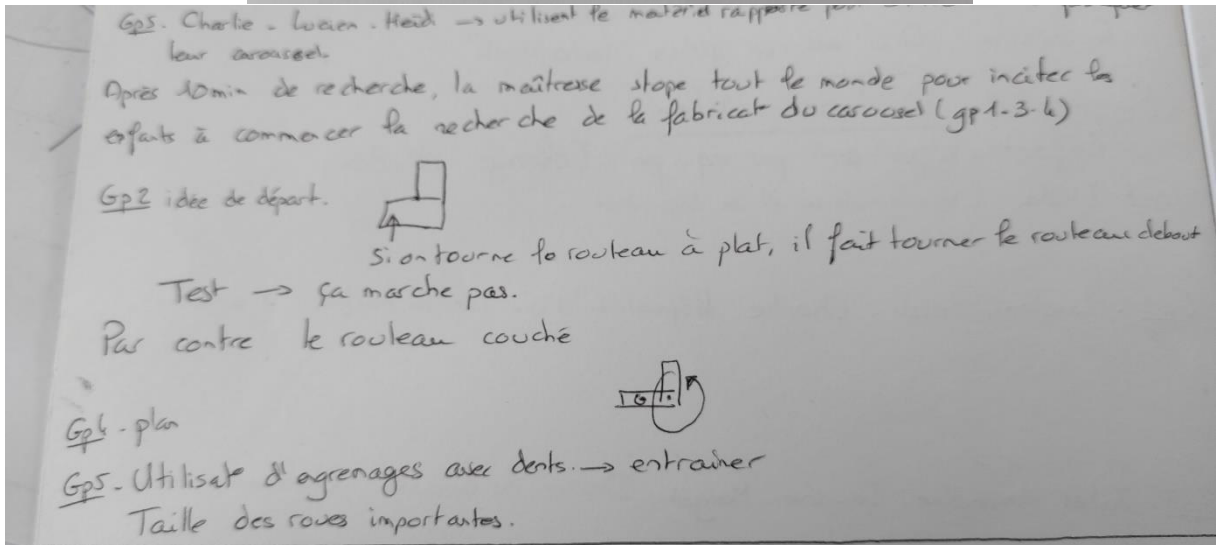 Gp5. Charlie - Lucien - Heidi → utilisent le matériel rapporté
leur caroussel.
Après 10min de recherche, la maîtresse stope tout le monde pour inciter les
enfants à commencer la recherche de la fabricat° du caroussel (gp1-3-4)
Gp2 idée de départ.
Si on tourne le rouleau à plat, il fait tourner le rouleau debout
Test → ça marche pas.
Par contre le rouleau couché
Gp4 - plan
Gp5 - Utilisat° d'agrenages avec dents. → entrainer
Taille des roues importantes.